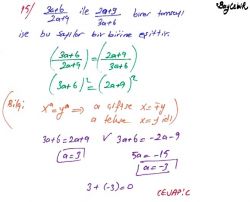 BeyCALKIR
15/ 3a+6/2a+9 ile 2a+9/3a+6 birer tamsayı
ise bu sayılar bir birine eşittir.
(3a+6/2a+9) = (2a+9/3a+6)
(3a+6)² = (2a+9)²
Bilgi: xⁿ = yⁿ ⇒ n çiftse x=∓y
n tekse x=y dir
3a+6=2a+9 ∨ 3a+6=-2a-9
a=3 5a=-15
a=-3
3+(-3)=0
CEVAP: C